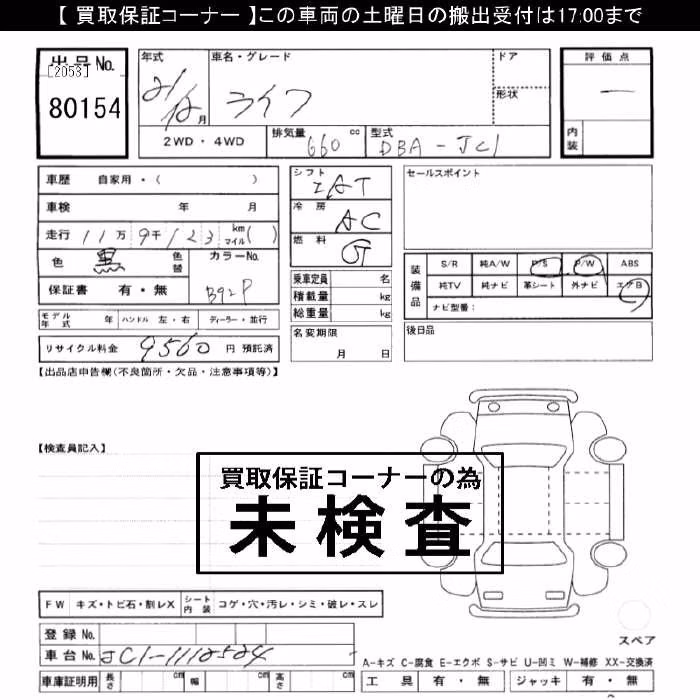 【 買取保証コーナー 】この車両の土曜日の搬出受付は17:00まで
出品No.
[2053]
80154
年式
21/12月
車名・グレード
ライフ
ドア
形状
評価点
—
内装
2WD・4WD
排気量 660 cc
型式 DBA-JC1
車歴 自家用・( )
車検 年 月
走行 11万9千123 km マイル( )
色 黒 色替
カラーNo.
B92P
保証書 有・無
シフト
IAT
冷房
AC
燃料
G
乗車定員 名
積載量 kg
総重量 kg
セールスポイント
装備品
S/R 純A/W P/S P/W ABS
純TV 純ナビ 革シート 外ナビ エアB
ナビ型番：
モデル年式 年 ハンドル 左・右 ディーラー・並行
名変期限
月 日
後日品
リサイクル料金 9560 円 預託済
【出品店申告欄(不良箇所・欠品・注意事項等)】
【検査員記入】
買取保証コーナーの為
未検査
FW キズ・トビ石・割レX シート内装 コゲ・穴・汚レ・シミ・破レ・スレ
スペア
登録No.
車台No. JC1-1112524
A-キズ C-腐食 E-エクボ S-サビ U-凹ミ W-補修 XX-交換済
車庫証明用 長さ cm 幅 cm 高さ cm
工具 有・無 ジャッキ 有・無